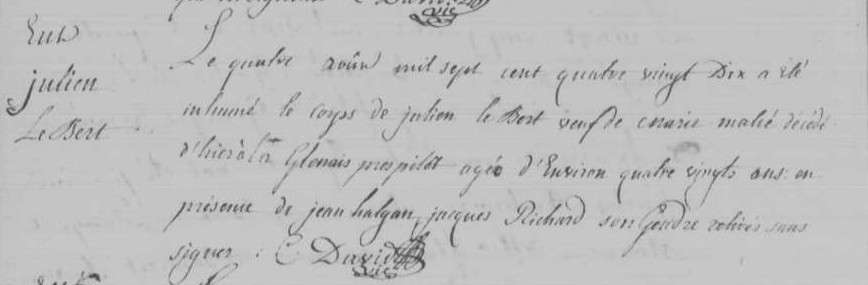 Ent
julien
Le Bert
Le quatre août mil sept cent quatre vingt Dix a été
inhumé le corps de julien le Bert veuf de marie mahé décédé
d'hier à la Glenais pres pilet agée d'Environ quatre vingts ans: en
présence de jean halgan, jacques Richard son Gendre retirés sans
signer: C David
Vic